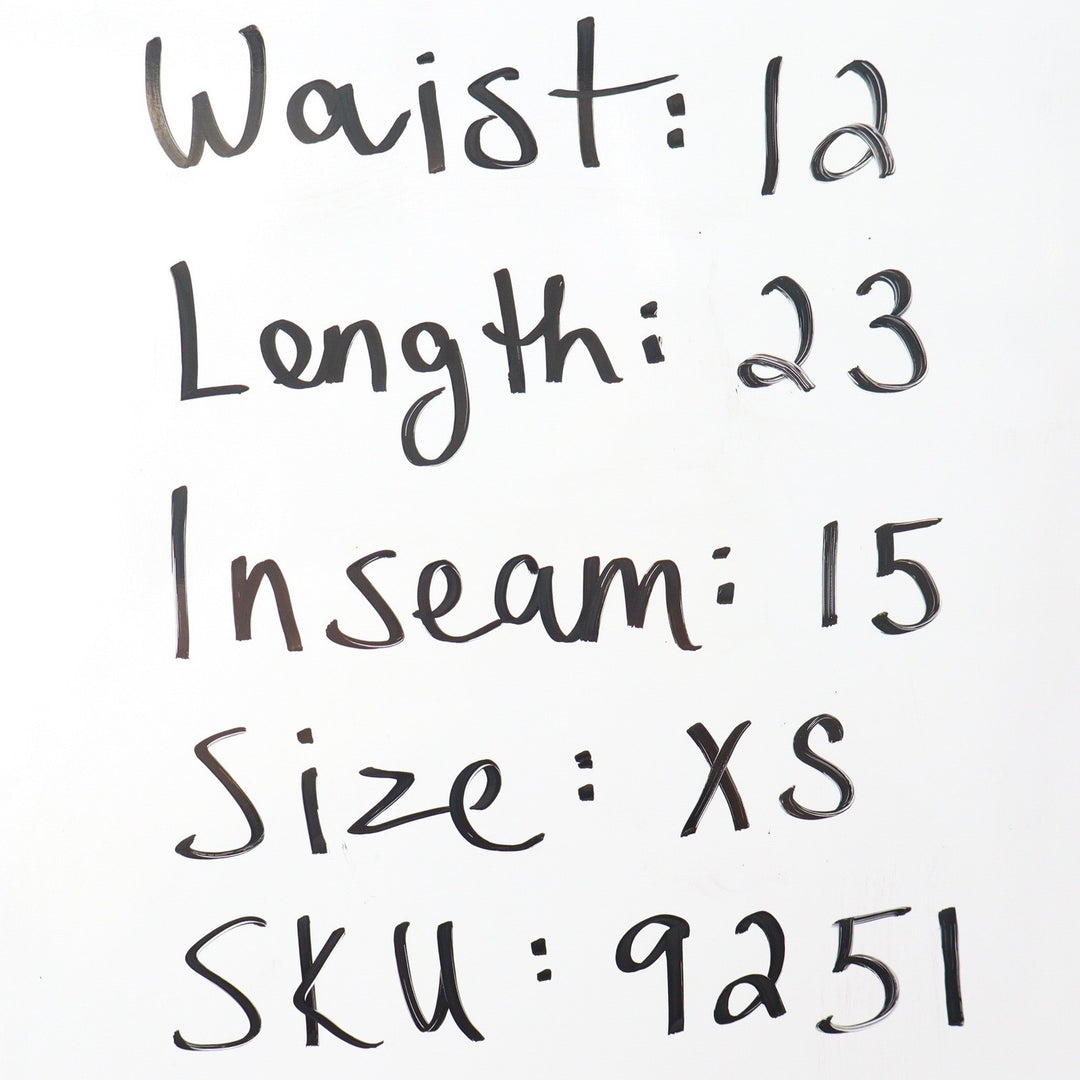 Waist: 12
Length: 23
Inseam: 15
Size: XS
SKU: 9251